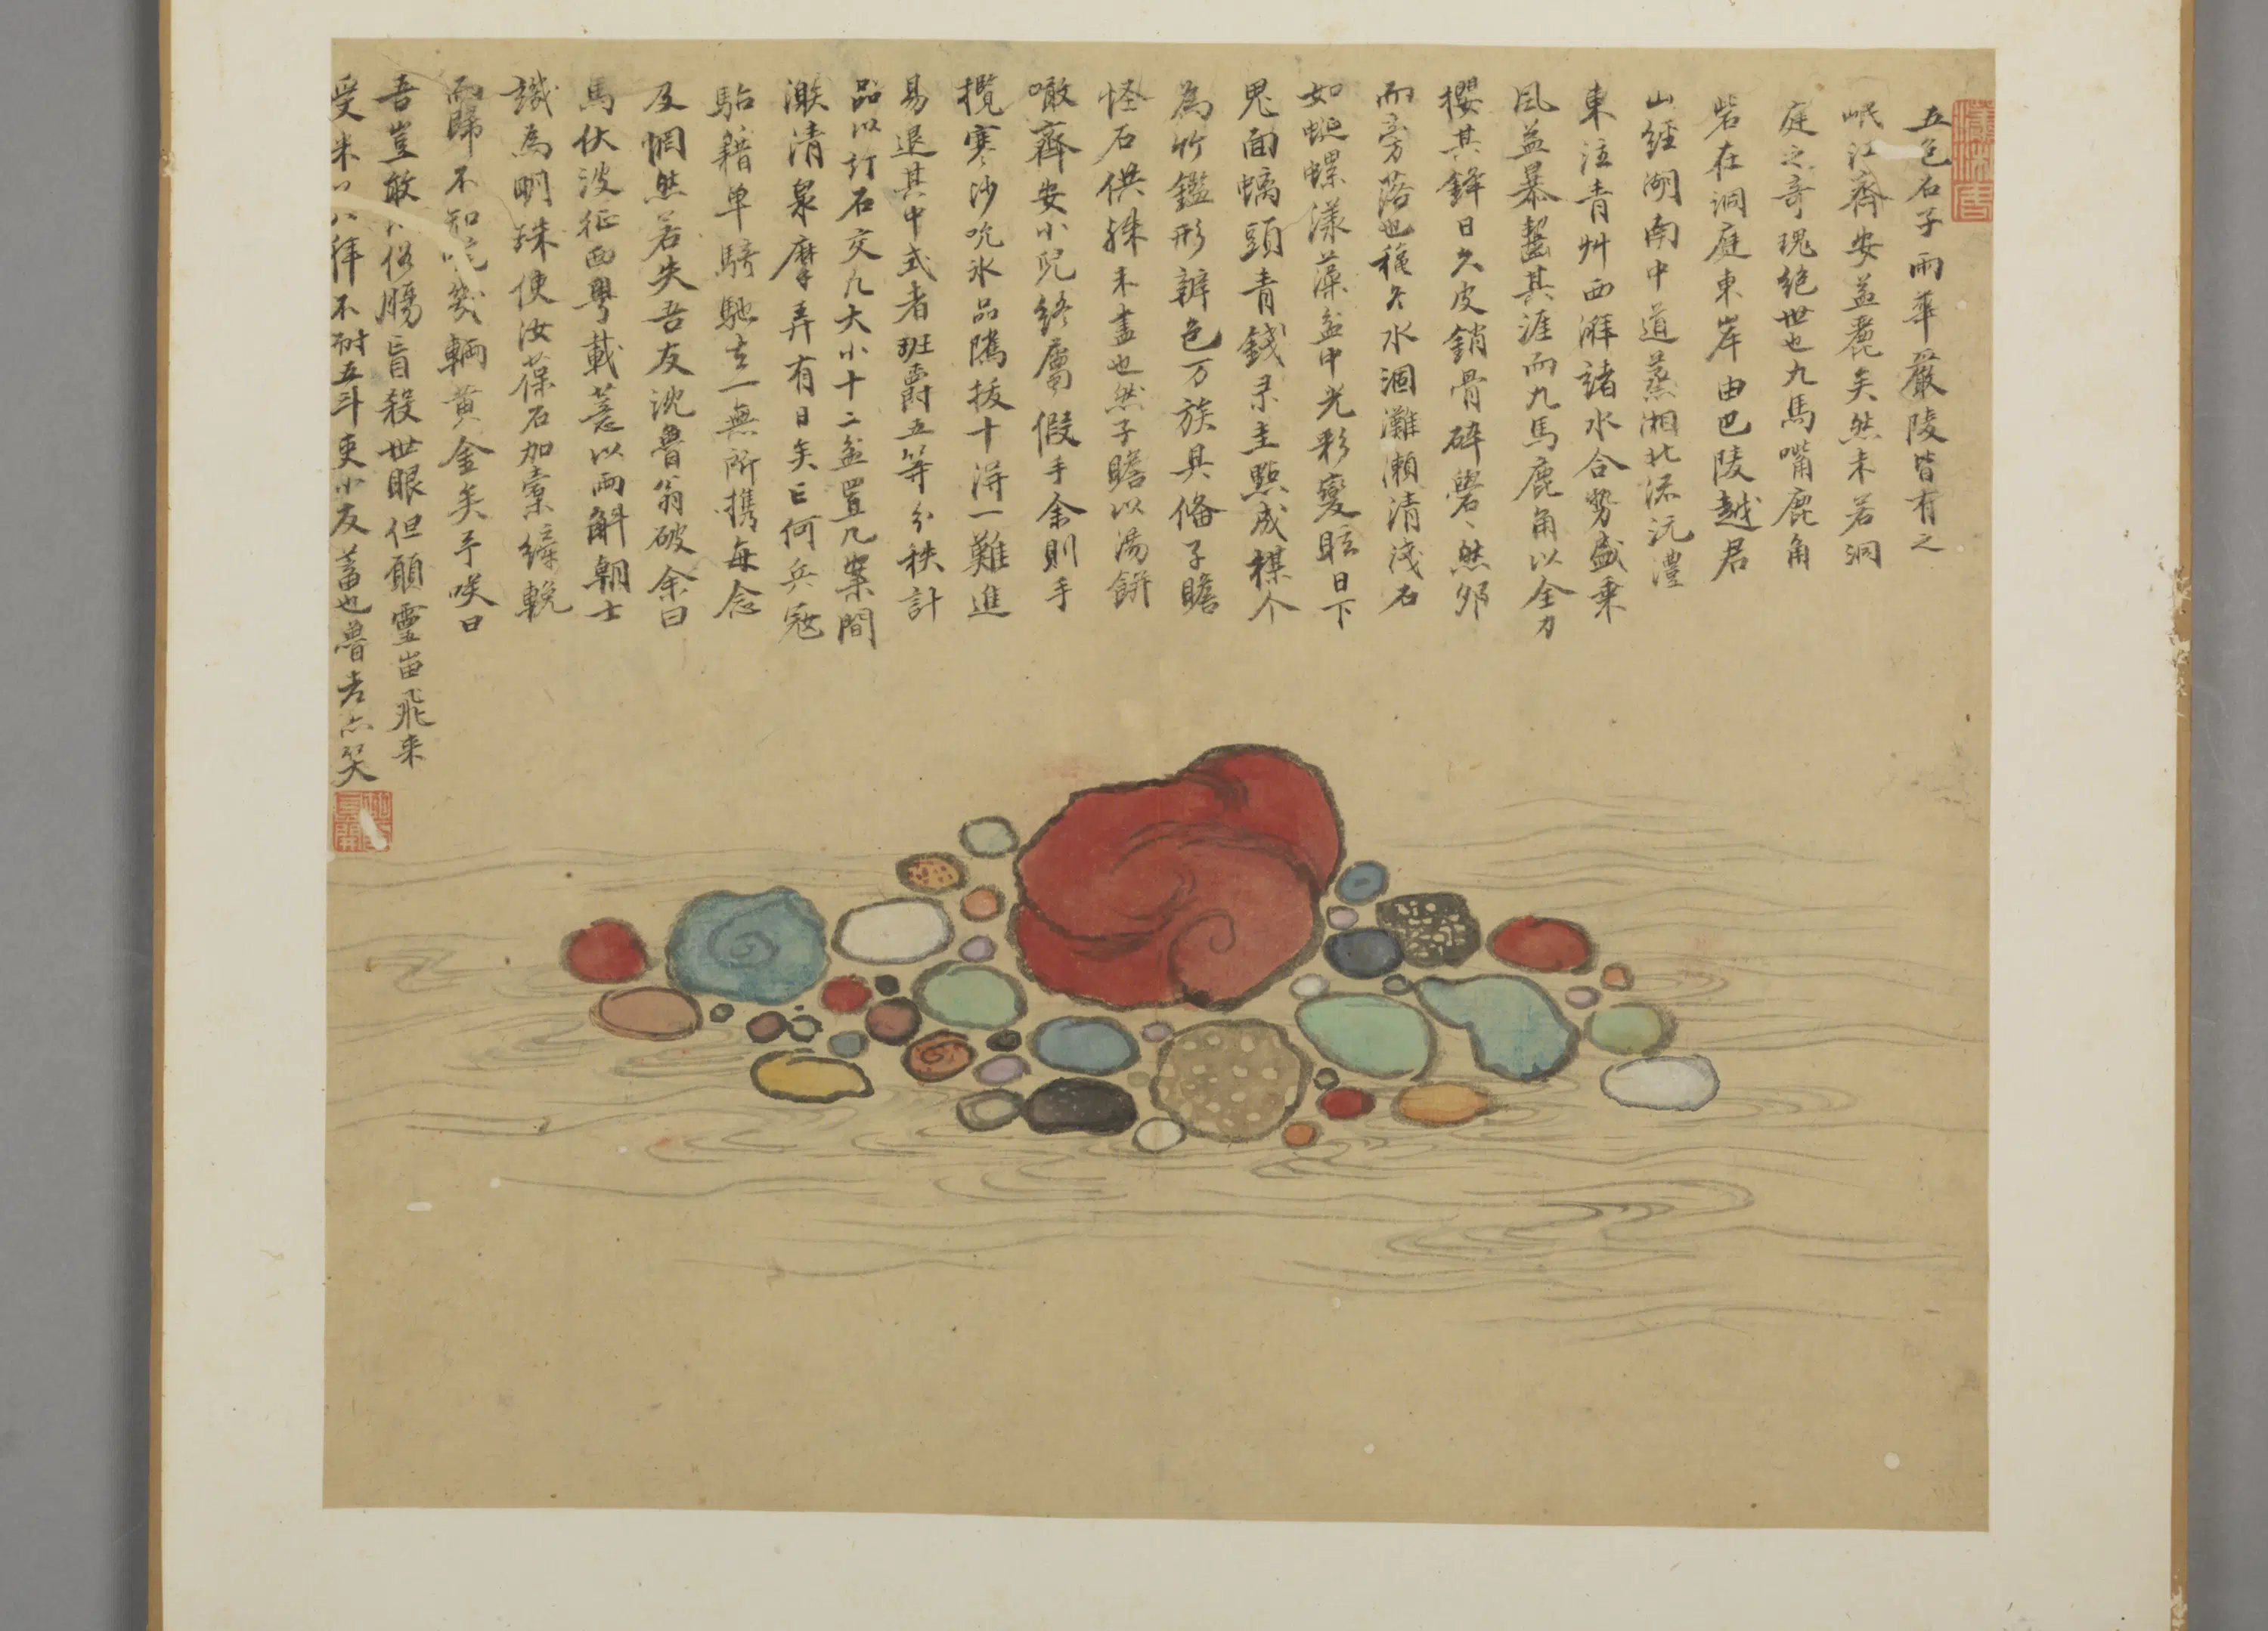 五色石子雨華嚴陵皆有之
岷江齊安益麗矣然未若洞
庭之奇瑰絕世也九馬嘴鹿角
砦在洞庭東岸由巴陵越君
山經湖南中道蒸湘北流沅澧
東注青艸西濰諸水合勢盛乘
風益暴齧其涯而九馬鹿角以全力
攖其鋒日久皮銷骨碎礐礐然邜
而旁落也穐冬水涸灘瀨清淺石
如蜒螺漾藻盆中光彩變眩日下
鬼面螭頭青錢朱圭點成棋个
為竹鑑形辨色万族具偹子瞻
怪石供殊未盡也然子瞻以湯餅
噉齊安小兒終屬假手余則手
攬寒沙吮氷品隲拔十得一難進
易退其中式者班爵五等分秩計
品以訂石交凡大小十二盆置几案間
漱清泉摩弄有日矣亡何兵寇
駘籍单騎馳去一無所携每念
及惘然若失吾友沈魯翁破余曰
馬伏波征西粵載薏以兩斛朝士
譏為明珠使汝葆石加橐纆輓
而歸不知幾輌黄金矣予咲曰
吾豈敢俗腸盲殺世眼但願靈岫飛来
受米八拜不耐五斗吏小友蓄也魯老亦笑